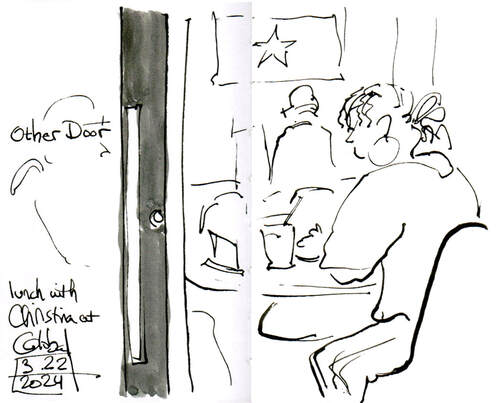 Other Door
lunch with
Christina at
3 22
2024